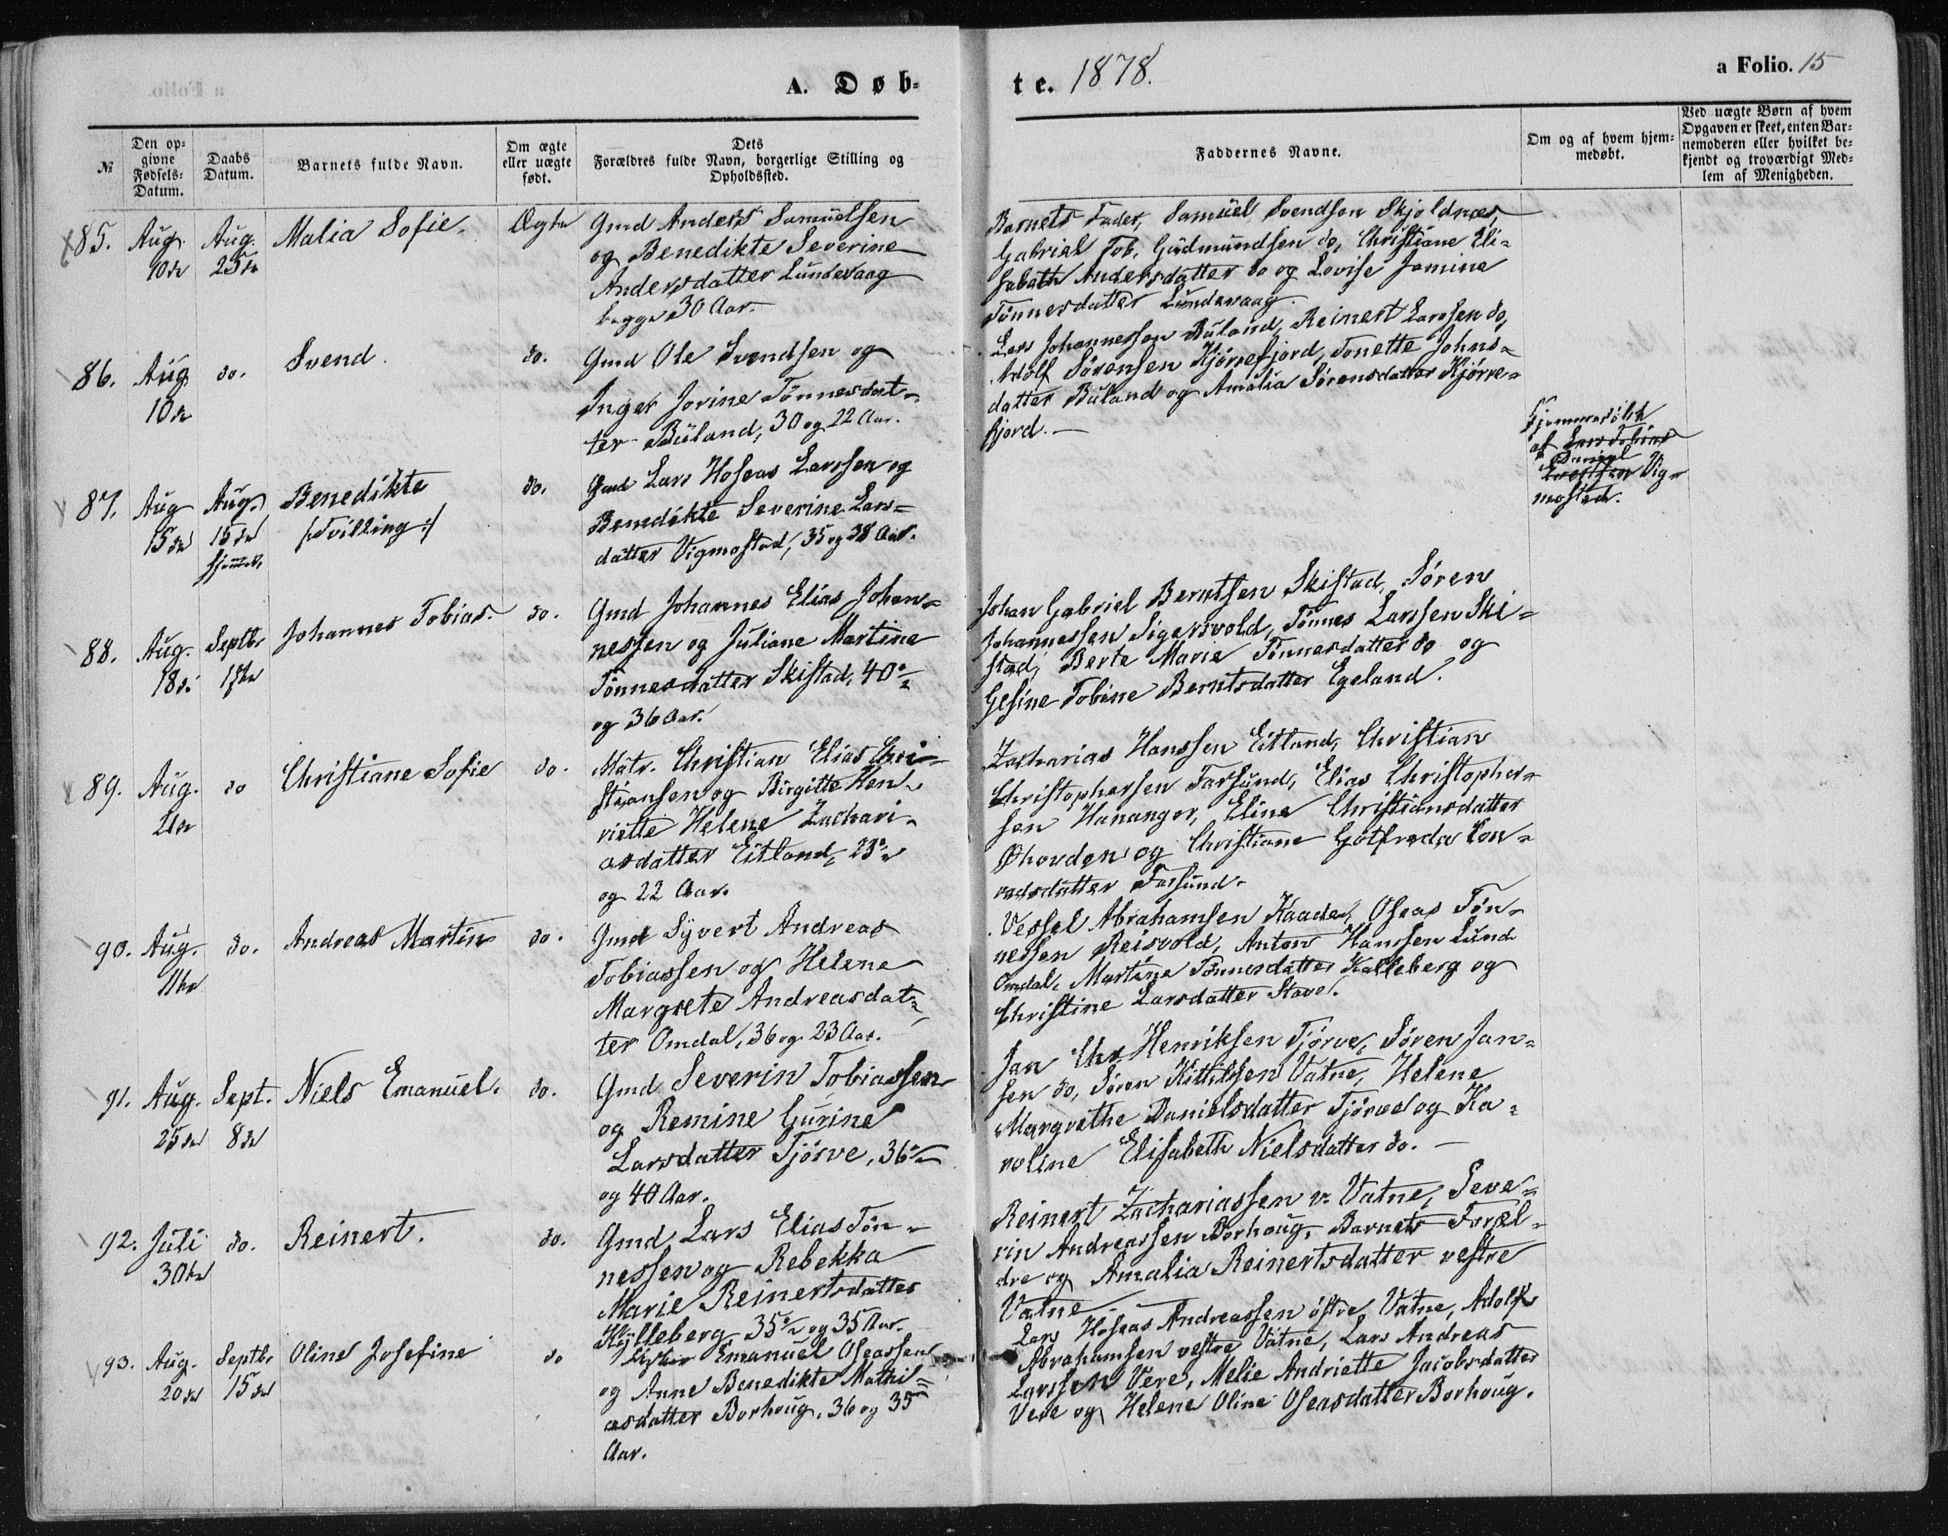 A. Døb-
te. 1878.
a Folio. 15
№
Den op-
givne
Fødsels-
Datum.
Daabs
Datum.
Barnets fulde Navn.
Om ægte
eller uægte
født.
Dets
Forældres fulde Navn, borgerlige Stilling og
Opholdssted.
Faddernes Navne.
Om og af hvem hjem-
medøbt.
Ved uægte Børn af hvem
Opgaven er skeet, enten Bar-
nemoderen eller hvilket be-
kjendt og troværdigt Med-
lem af Menigheden.
85. Aug. 10de
Aug. 25de
Malia Sofie.
Ægte
Gmd Anders Samuelsen
og Benedikte Severine
Andersdatter Lundevaag
begge 30 Aar.
Barnets Fader, Samuel Svendsen Skjoldnes,
Gabriel Tob. Gudmundsen do, Christiane Eli-
sabeth Andersdatter do og Lovise Jamine
Tønnesdatter Lundevaag.
86. Aug. 10de
do.
Svend.
do.
Gmd Ole Svendsen og
Inger Jorine Tønnesdat-
ter Büland, 30 og 22 Aar.
Lars Johannessen Büland, Reinert Larssen do,
Adolf Sørensen Kjørrefjord, Tonette Johns-
datter Büland og Amalia Sørensdatter Kjørre-
fjord. —
87. Aug 15de
Aug. 15de
hjemmed.
Benedikte
/:Tvilling:/
do.
Gmd Lars Hoseas Larssen og
Benedikte Severine Lars-
datter Vigmostad, 35 og 38 Aar.
Hjemmedøbt
af Lars Tobias
Daniel
Larssen Vig-
mostad.
88. Aug. 18de
Septbr 1ste
Johannes Tobias.
do.
Gmd Johannes Elias Johan-
nessen og Juliane Martine
Tønnesdatter Skistad, 40
og 36 Aar.
Johan Gabriel Berntsen Skistad, Søren
Johannessen Sigersvold, Tønnes Larssen Ski-
stad, Berte Marie Tønnesdatter do og
Gesine Tobine Berntsdatter Egeland.
89. Aug. 21de
do
Christiane Sofie
do.
Matr. Christian Elias Chri-
stiansen og Birgitte Hen-
riette Helene Zachari-
asdatter Eitland, 23
og 22 Aar.
Zacharias Hanssen Eitland, Christian
Christophersen Farsund, Elias Christopher-
sen Hananger, Eline Christiansdatter
Øhovden og Christiane Gotfreda Con-
radsdatter Farsund.
90. Aug. 11te
do.
Andreas Martin
do.
Gmd Syvert Andreas
Tobiassen og Helene
Margrete Andreasdat-
ter Omdal, 36 og 23 Aar.
Vessel Abrahamsen Kaade, Oseas Tøn-
nessen Reisvold, Anton Hanssen Lund
Omdal, Martine Tønnesdatter Kalleberg og
Christine Larsdatter Stave.
91. Aug. 25de
Sept. 8de
Niels Emanuel.
do.
Gmd Severin Tobiassen
og Remine Gurine
Larsdatter Tjørve, 36
og 40 Aar.
Jan Chr. Henriksen Tjørve, Søren Jan-
sen do, Søren Kittilssen Vatne, Helene
Margrethe Danielsdatter Tjørve og Ka-
roline Elisabeth Nielsdatter do. —
92. Juli 30te
do.
Reinert.
do.
Gmd Lars Elias Tøn-
nessen og Rebekka
Marie Reinertsdatter
Kalleberg, 35 og 35 Aar.
Reinert Zachariassen v. Vatne, Seve-
rin Andreassen Borhoug, Barnets Foræl-
dre og Amalia Reinertsdatter vestre
Vatne
93. Aug. 20de
Septbr 15de
Oline Josefine
do
Fisker Emanuel Oseassen
og Anne Benedikte Mathi-
asdatter Borhoug, 36 og 35
Aar.
Lars Hoseas Andreassen østre Vatne, Adolf
Abrahamsen vestre Vatne, Lars Andreas
Larssen Vere, Melie Andriette Jacobsdatter
Vere og Helene Oline Oseasdatter Borhoug.